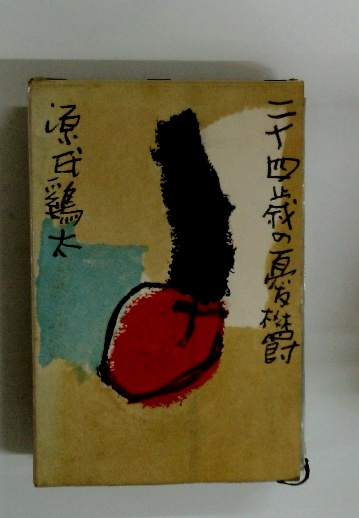 二十四歳の憂鬱
源氏鶏太